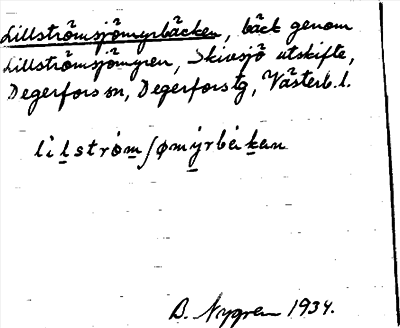 Lillströmsjömyrbäcken, bäck genom
Lillströmsjömyren, Skivsjö utskifte,
Degerfors sn, Degerfors tg, Västerb. l.
lilströmʃømýrbékan
B. Nygren 1934.